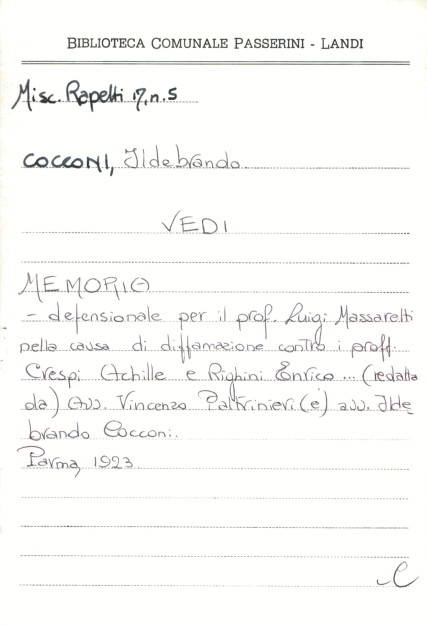 BIBLIOTECA COMUNALE PASSERINI - LANDI
Misc. Rapetti 17, n. 5
COCCONI, Ildebrando
VEDI
MEMORIA
- defensionale per il prof. Luigi Massaretti
nella causa di diffamazione contro i proff.
Crespi Achille e Righini Enrico ... (redatta
da) Avv. Vincenzo Paltrinieri (e) avv. Ilde
brando Cocconi.
Parma, 1923